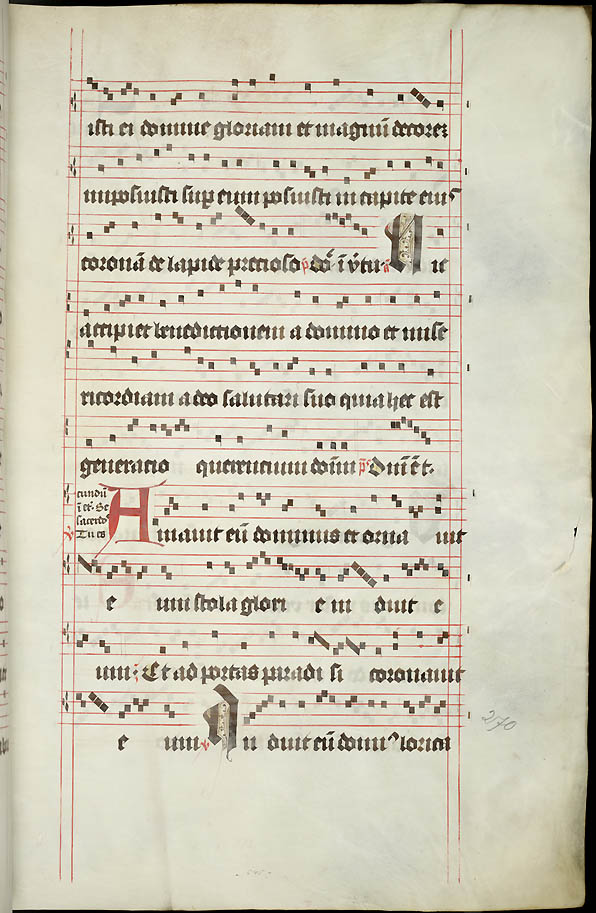 isti ei domine gloriam et magnū decorez
imposuisti suꝑ eum posuisti in capite eiꝰ
coronā de lapide precioso p̄ do͛ ī v̓tu. a N ic
accipiet benedictionem a domino et mise
ricordiam a deo salutari suo quia hec est
generatio querencium domī p̄ Dnī ē t.
cundū
ī eꝰ. Se
sacerdo
Tu es
Amauit eū dominus et orna uit
e um stola glori e in duit e
um: Et ad portas paradi si coronauit
e um v In duit eū domiꝰ lorica
270